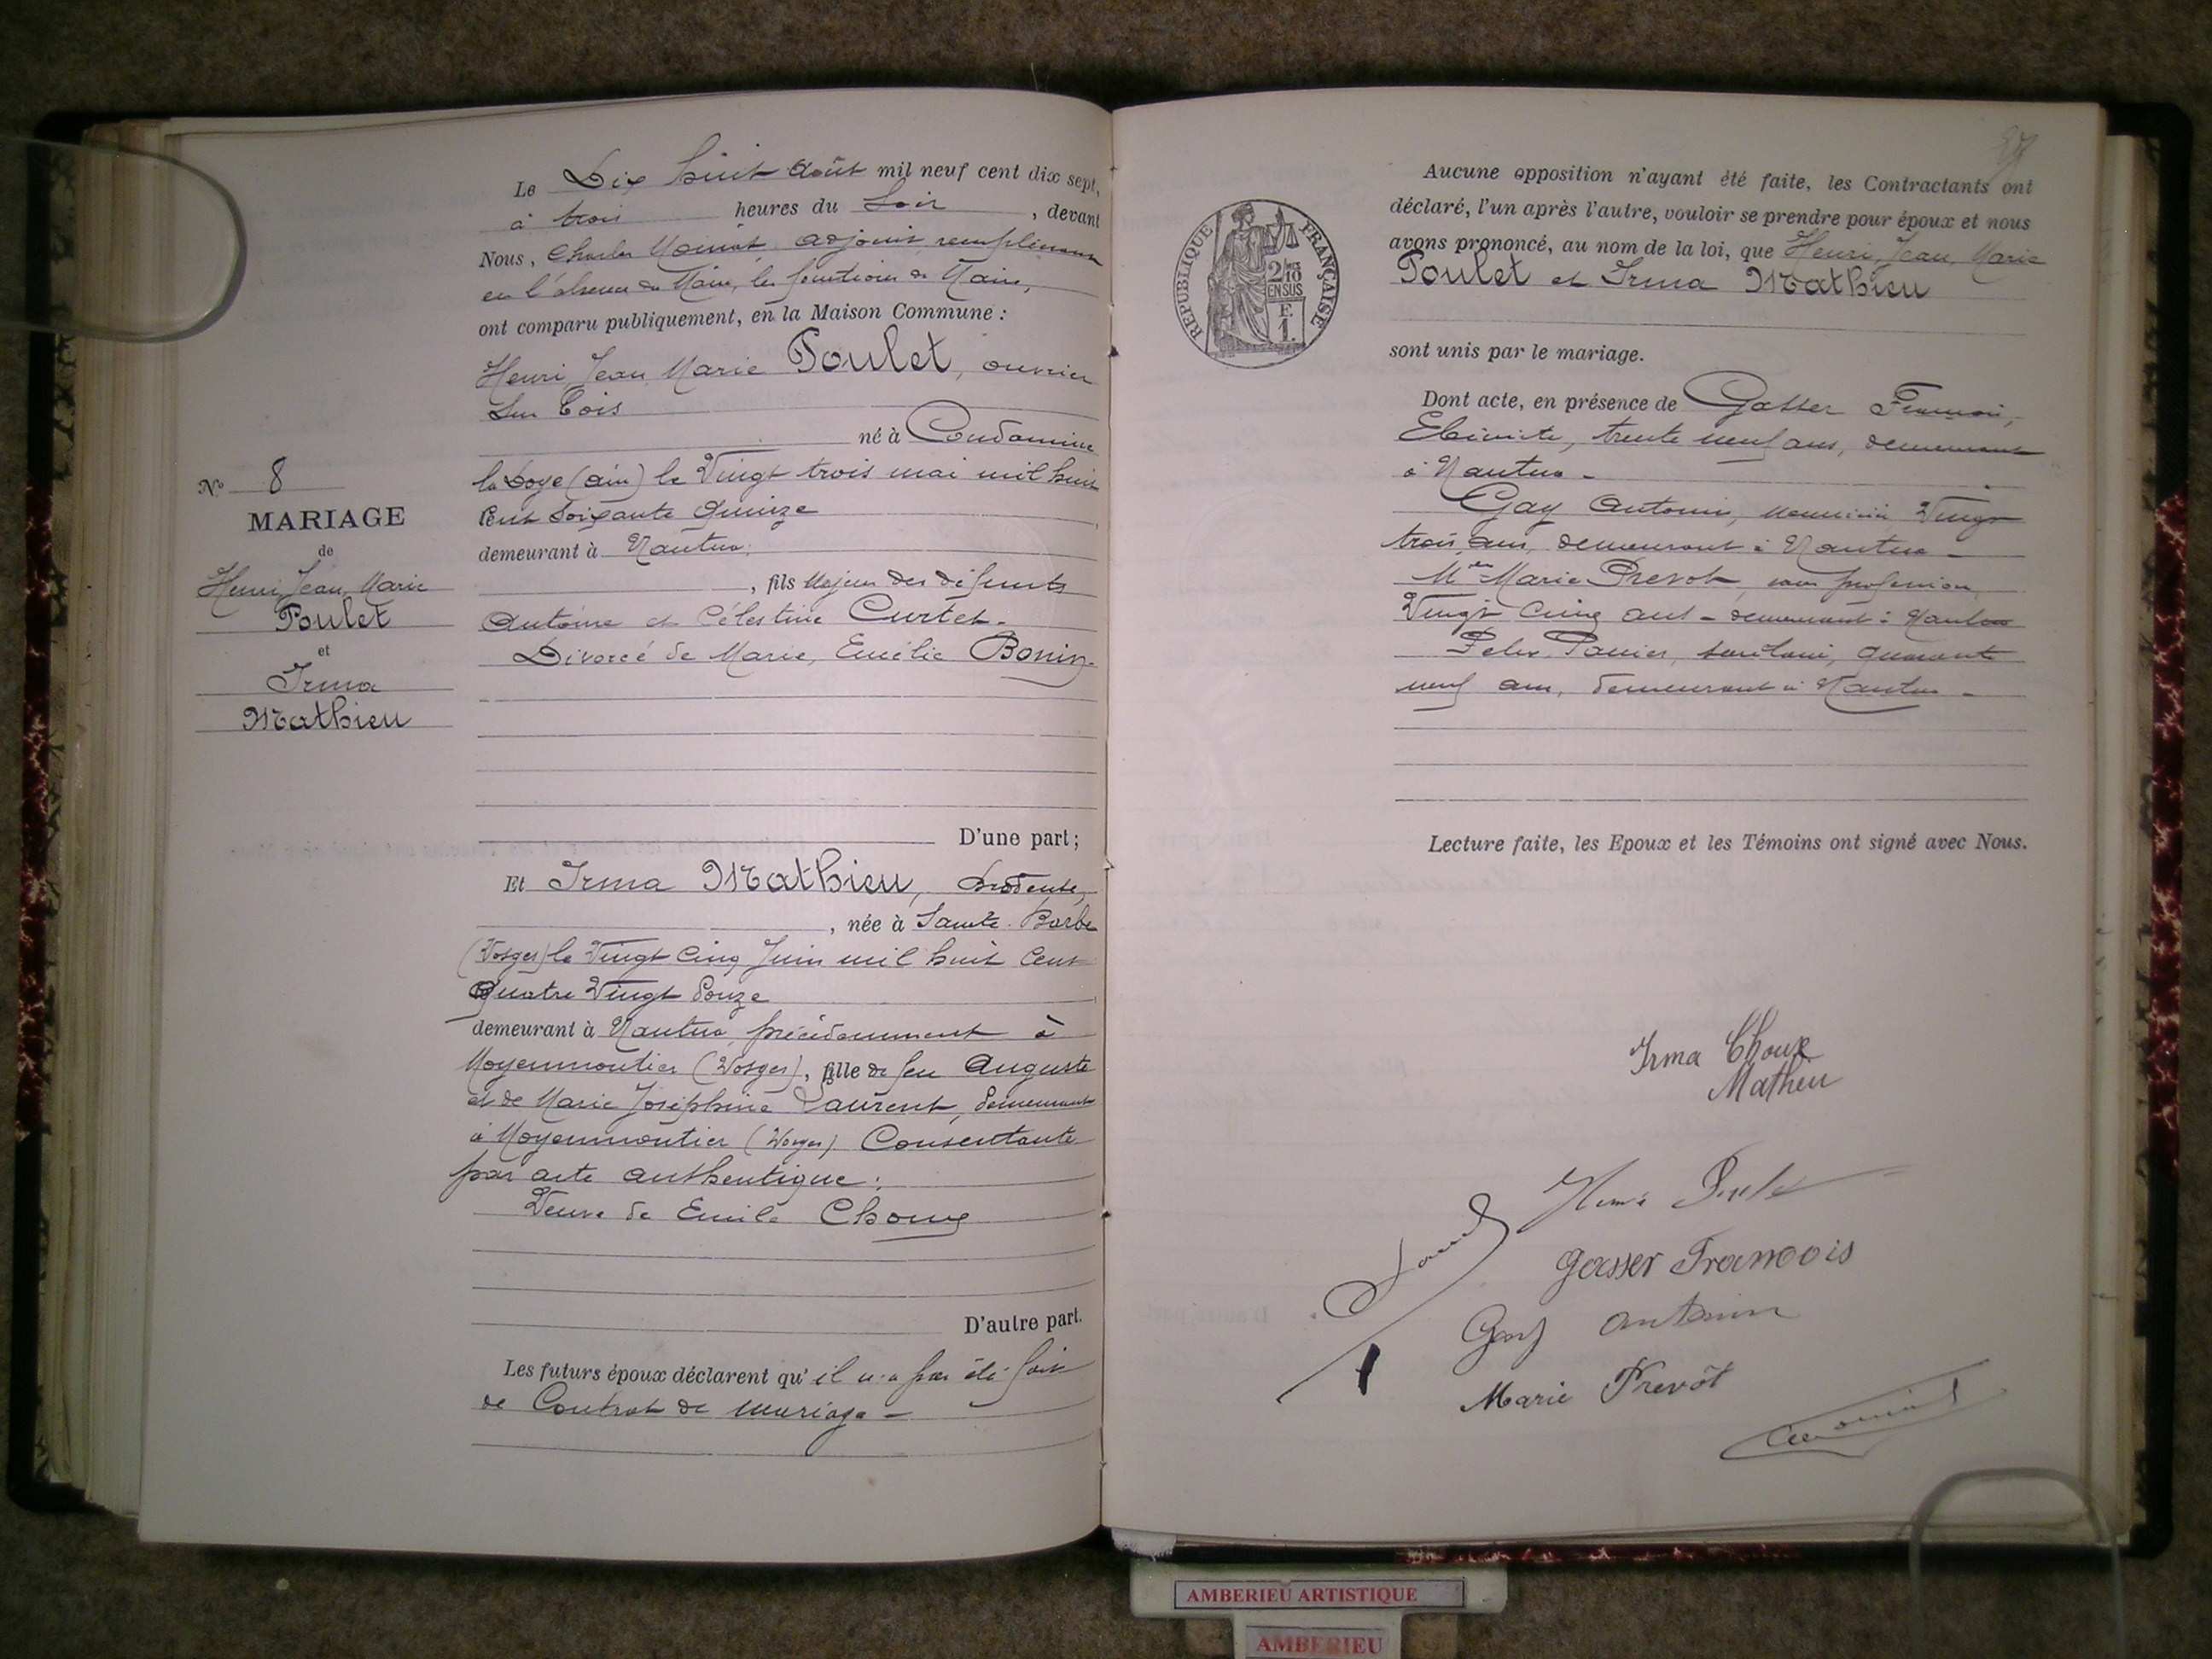 Le Dix huit Août mil neuf cent dix sept,
à trois heures du Soir, devant
Nous, Charles Moinat, adjoint, remplissant
en l'absence du Maire, les fonctions de Maire,
ont comparu publiquement, en la Maison Commune :
Henri, Jean, Marie Poulet, ouvrier
sur bois
né à Condamine
la Doye (Ain) le Vingt trois mai mil huit
cent soixante Quinze
demeurant à Nantua,
, fils Majeur des défunts
Antoine et Célestine Curtet.
Divorcé de Marie, Emilie Bonin.
D'une part ;
No 8
MARIAGE
de
Henri, Jean, Marie
Poulet
et
Irma
Mathieu
Et Irma Mathieu, Brodeuse,
, née à Sainte-Barbe
(Vosges) le Vingt Cinq Juin mil huit Cent
Quatre Vingt Douze
demeurant à Nantua, précédemment à
Moyenmoutier (Vosges), fille de feu Auguste
et de Marie Joséphine Laurent, demeurant
à Moyenmoutier (Vosges) Consentante
par acte authentique.
Veuve de Emile Choux
D'autre part.
Les futurs époux déclarent qu'il n'a pas été fait
de Contrat de mariage -
RÉPUBLIQUE FRANÇAISE
2/10
EN SUS
F.
1.
Aucune opposition n'ayant été faite, les Contractants ont
déclaré, l'un après l'autre, vouloir se prendre pour époux et nous
avons prononcé, au nom de la loi, que Henri, Jean, Marie
Poulet et Irma Mathieu
sont unis par le mariage.
Dont acte, en présence de Gasser François,
Ebéniste, trente neuf ans, demeurant
à Nantua -
Gay Antonin, menuisier Vingt
trois ans, demeurant à Nantua -
Mlle Marie Prevot, sans profession,
Vingt Cinq ans - demeurant à Nantua
Félix Panier, quarante
neuf ans, demeurant à Nantua -
Lecture faite, les Epoux et les Témoins ont signé avec Nous.
Irma Choux
Matheu
Gasser Francois
Gay Antonin
Marie Prevôt
AMBERIEU ARTISTIQUE
AMBERIEU